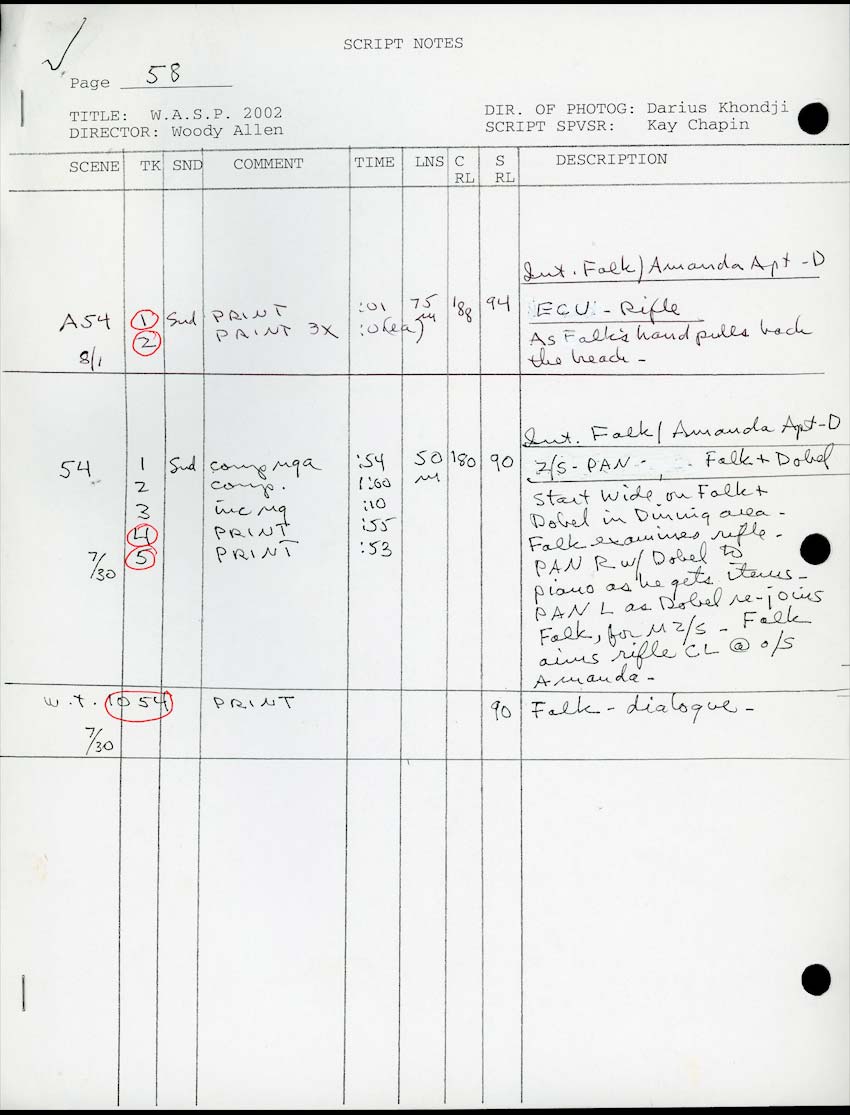 SCRIPT NOTES
Page 58
TITLE: W.A.S.P. 2002
DIRECTOR: Woody Allen
DIR. OF PHOTOG: Darius Khondji
SCRIPT SPVSR: Kay Chapin
SCENE TK SND COMMENT TIME LNS C RL S RL DESCRIPTION
Int. Falk/Amanda Apt - D
A54 1 Snd PRINT :01 75 M 188 94 ECU - Rifle
2 PRINT 3X :01(ea) As Falk's hand pulls back
8/1 the breach -
Int. Falk/Amanda Apt - D
54 1 Snd comp nga :54 50 M 180 90 2/S - PAN - Falk + Dobel
2 comp. 1:00 Start wide on Falk +
3 inc ng :10 Dobel in Dining area -
4 PRINT :55 Falk examines rifle -
7/30 5 PRINT :53 PAN R w/ Dobel to
piano as he gets items -
PAN L as Dobel re-joins
Falk, for M2/S - Falk
aims rifle CL @ o/S
Amanda -
W.T. 1054 PRINT 90 Falk - dialogue -
7/30